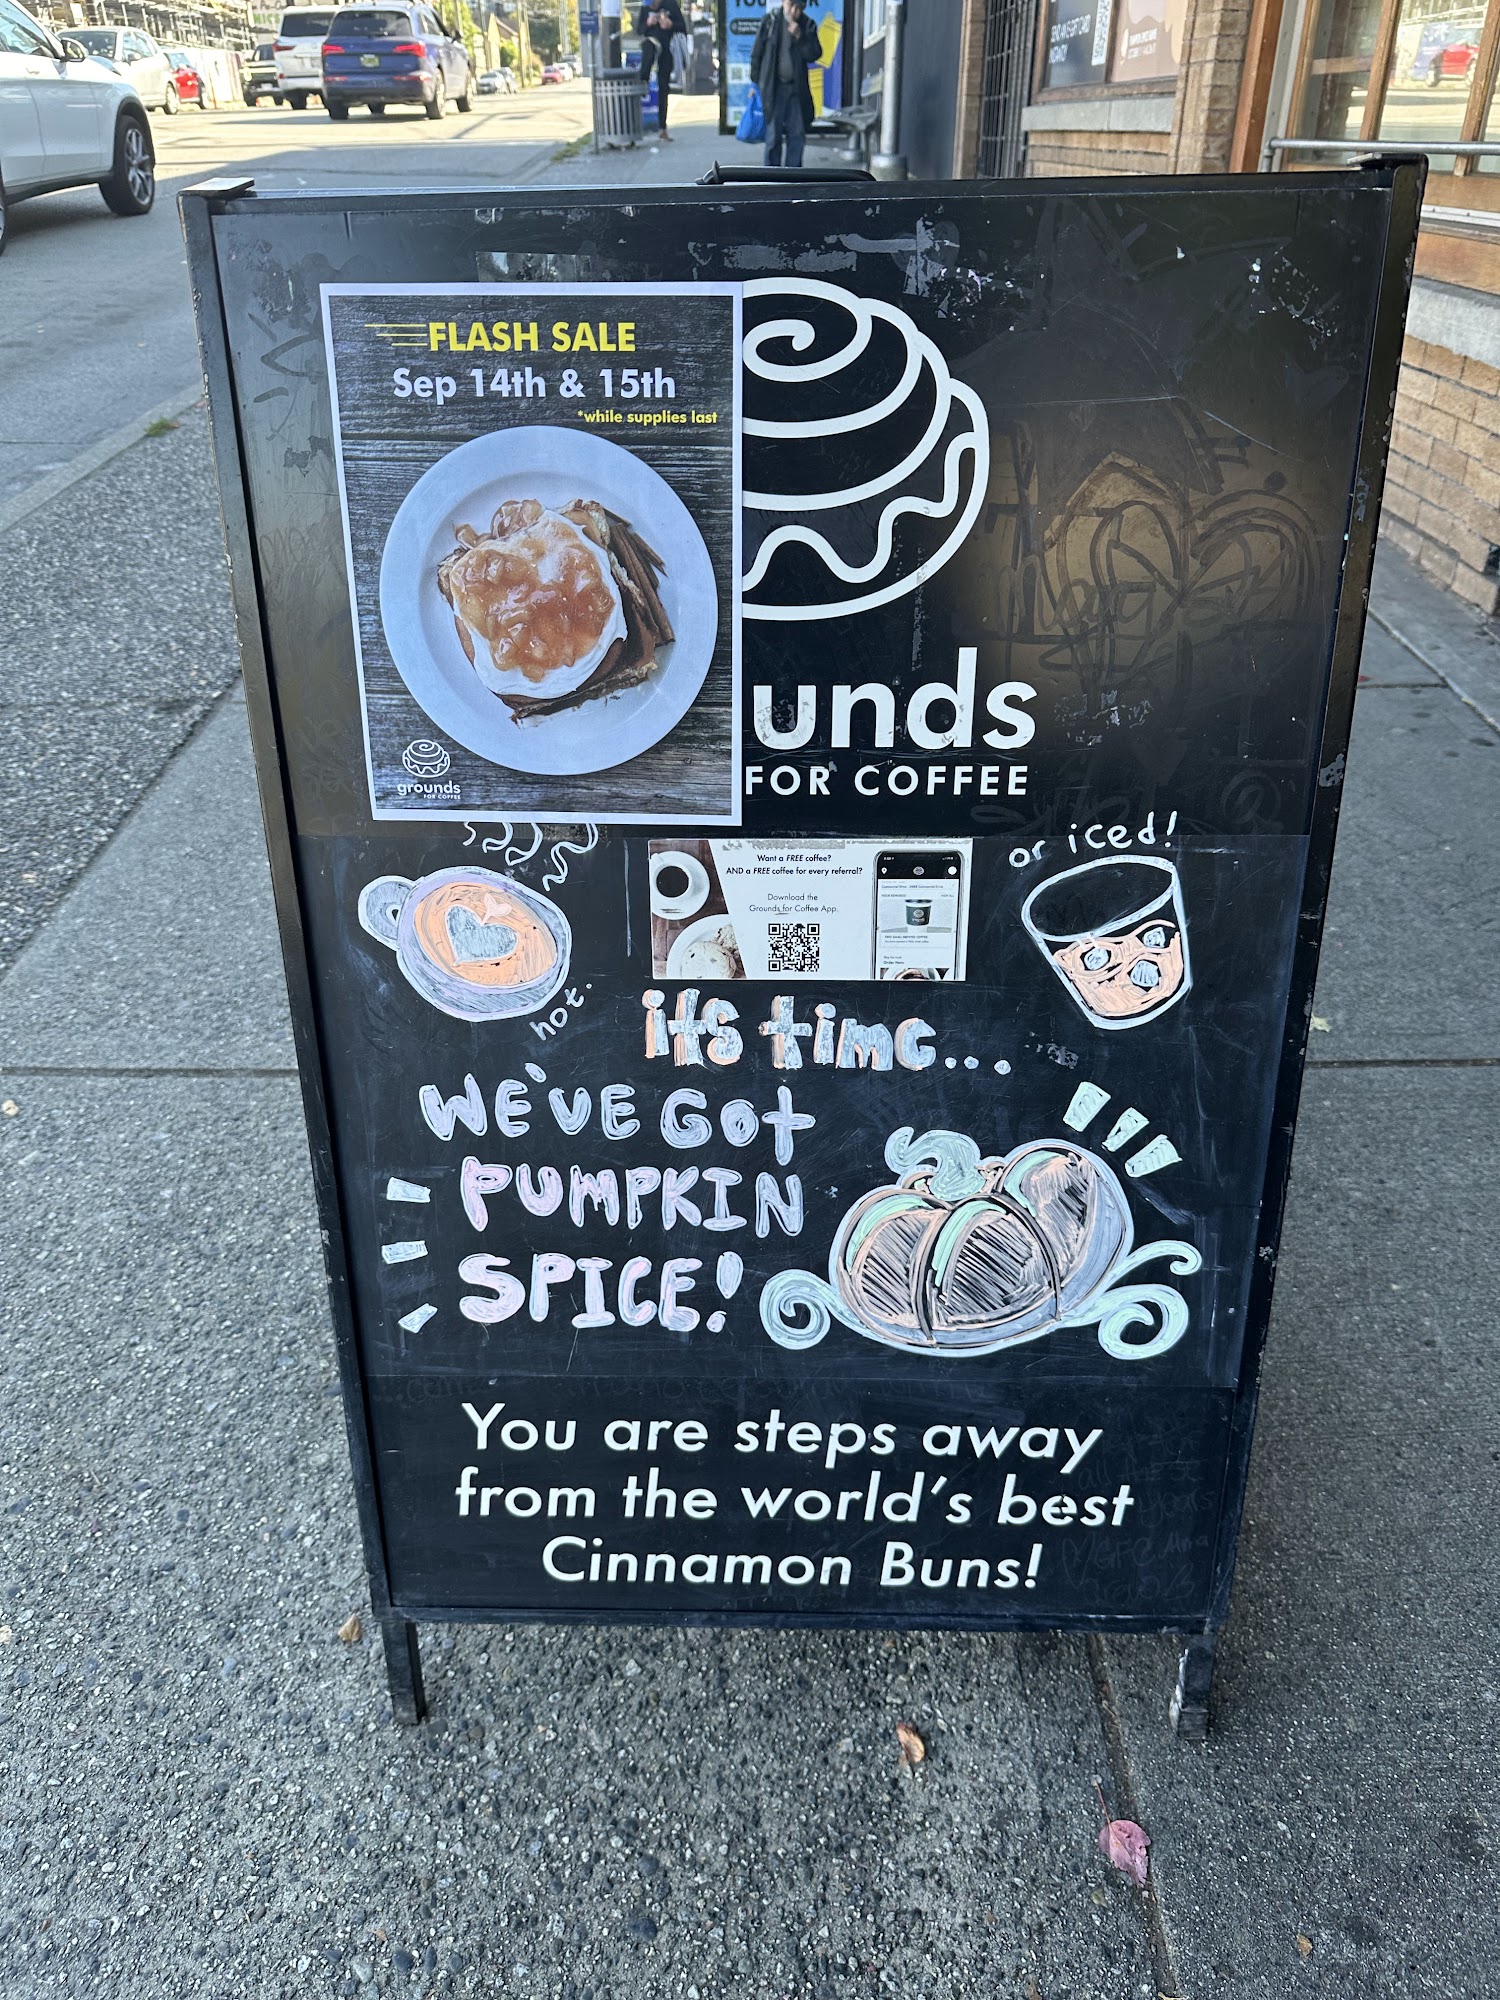 FLASH SALE
Sep 14th & 15th
*while supplies last
grounds
FOR COFFEE
unds
FOR COFFEE
Want a FREE coffee?
AND a FREE coffee for every referral?
Download the
Grounds for Coffee App.
or iced!
hot.
it's time...
WE'VE GOT
PUMPKIN
SPICE!
You are steps away
from the world's best
Cinnamon Buns!